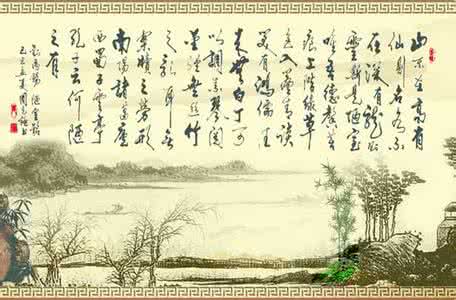 山不在高有
仙則名水不
在深有龍則
靈斯是陋室
唯吾德馨苔
痕上階綠草
色入簾青談
笑有鴻儒往
來無白丁可
以調素琴閱
金經無絲竹
之亂耳無
案牘之勞形
南陽諸葛廬
西蜀子雲亭
孔子云何陋
之有
劉禹錫 陋室銘